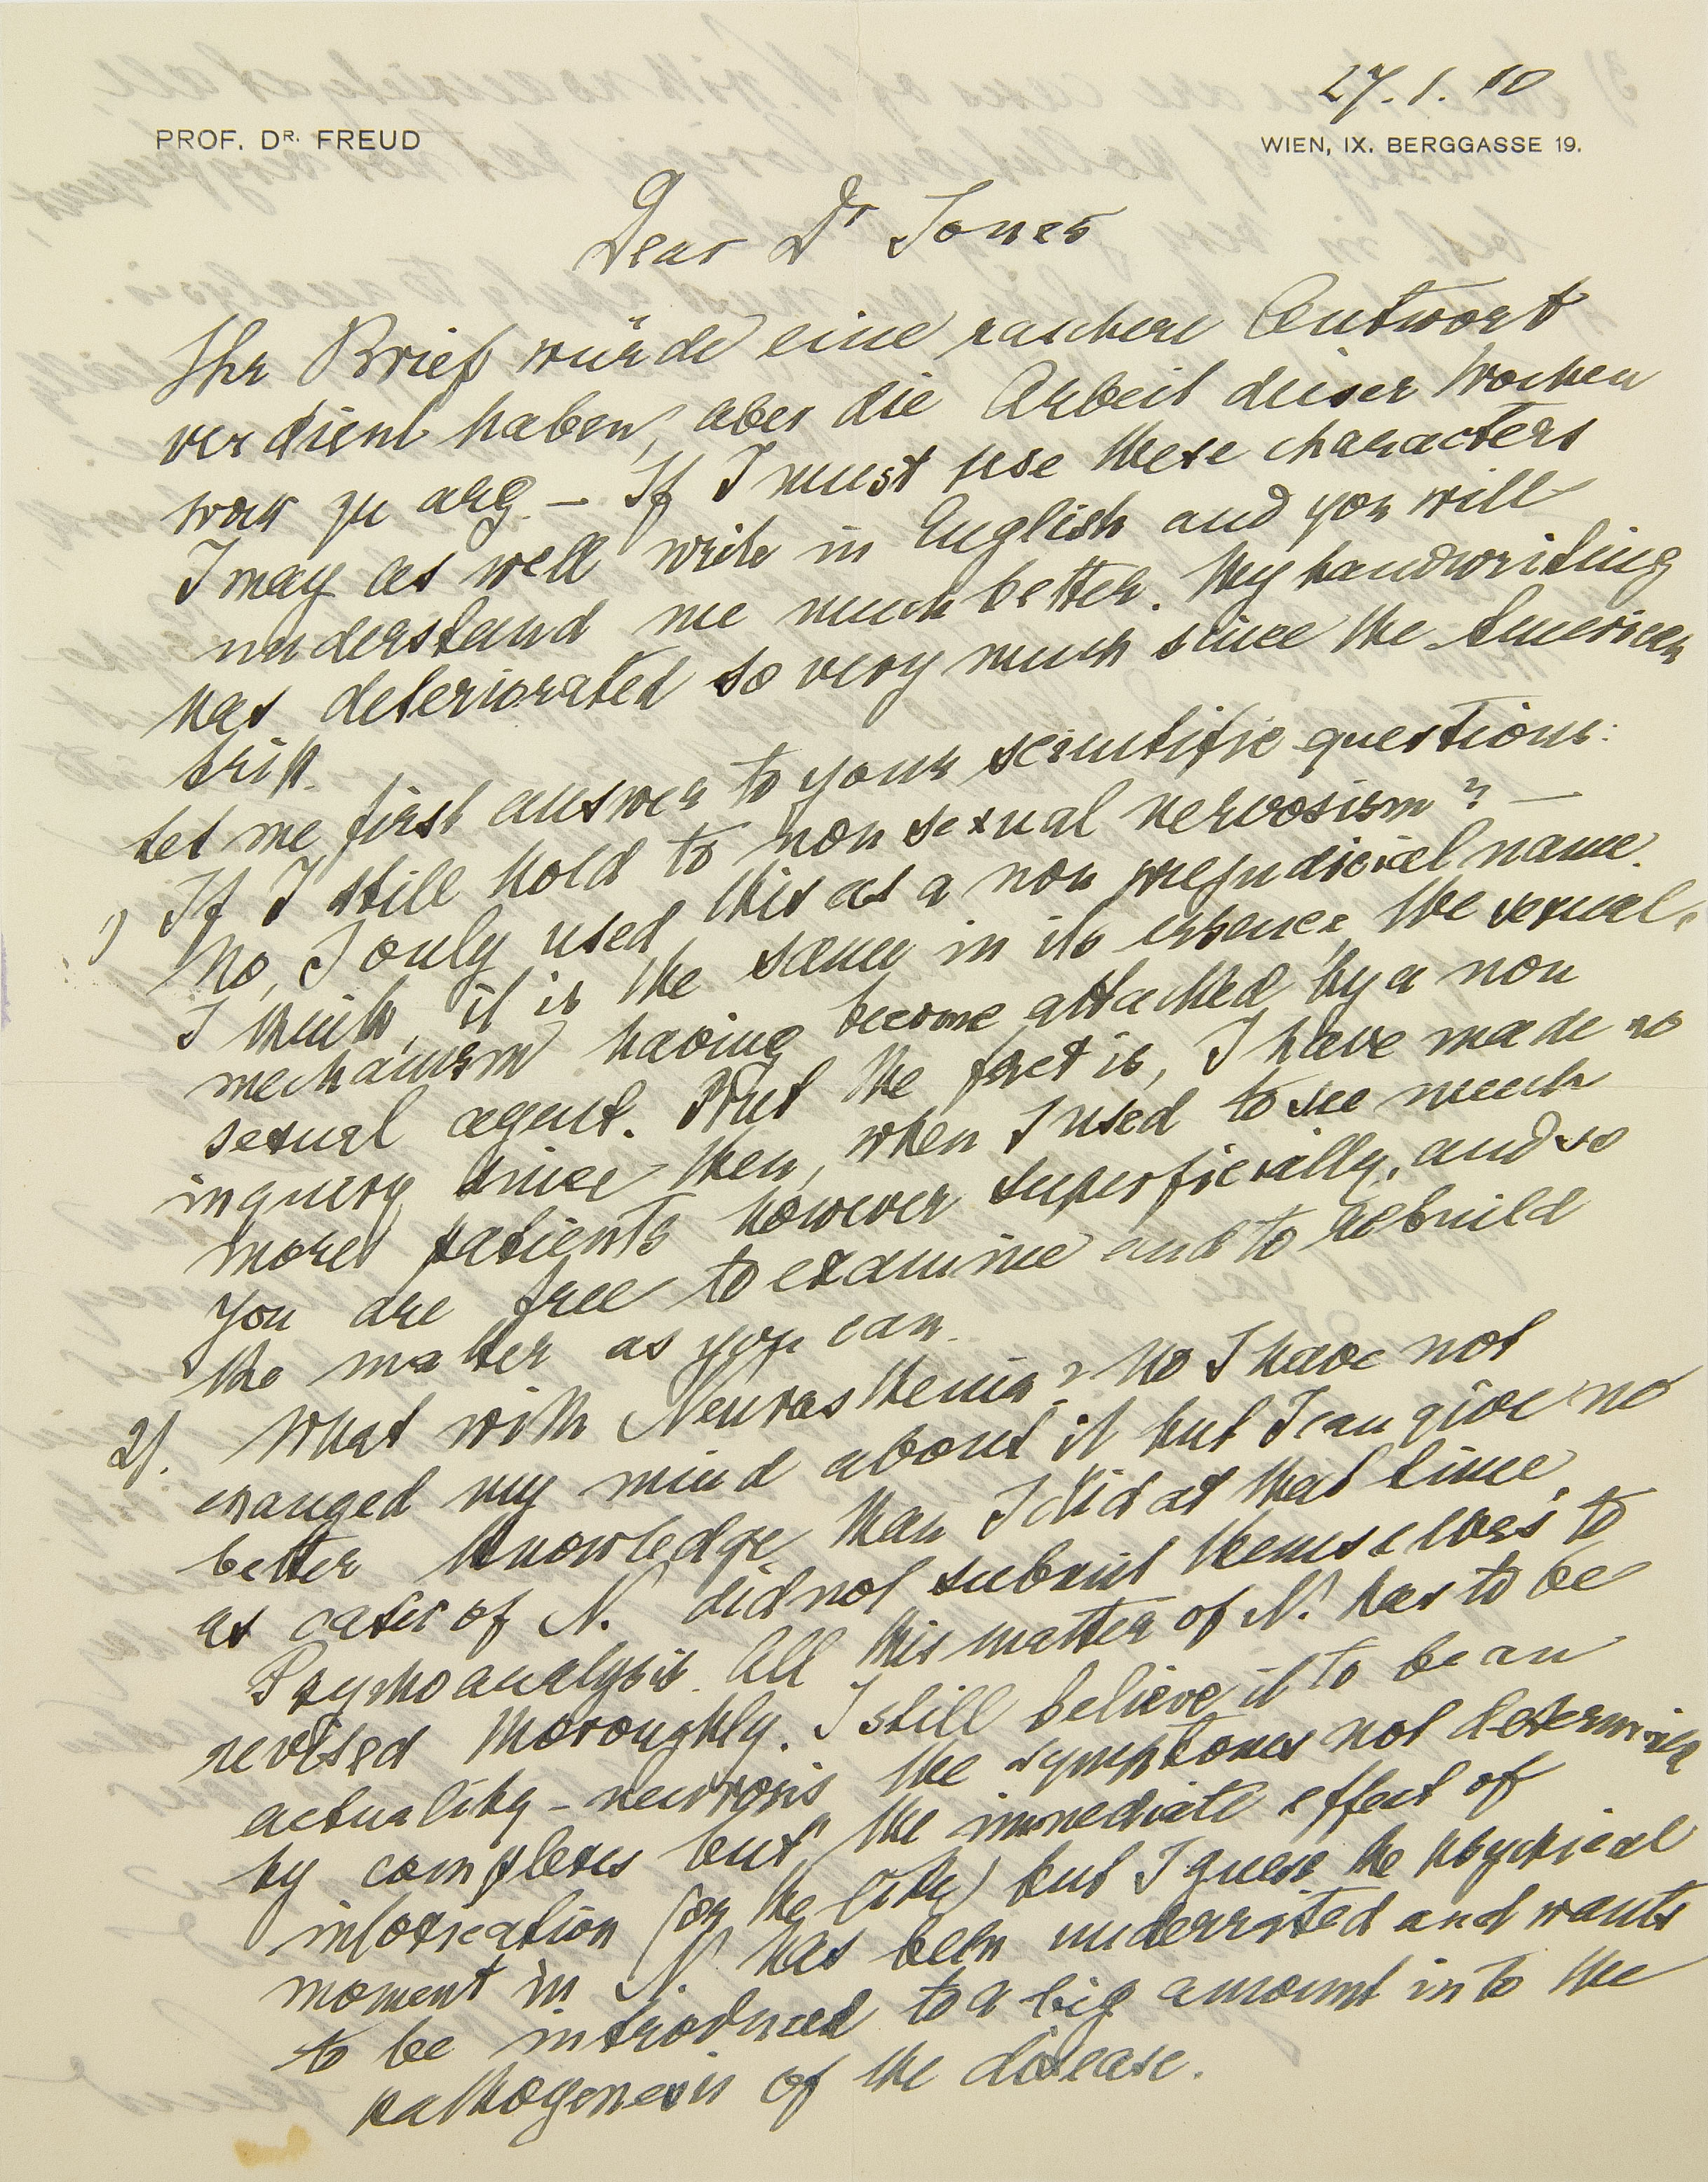 27. 1. 10
PROF. DR. FREUD
WIEN, IX. BERGGASSE 19.
Dear Dr Jones
Ihr Brief würde eine raschere Antwort
verdient haben, aber die Arbeit dieser Wochen
war zu arg. – If I must use these characters
I may as well write in English and you will
understand me much better. My handwriting
has deteriorated so very much since the American
trip.
Let me first answer to your scientific questions:
1) If I still hold to non sexual nervosism? —
No, I only used this as a non prejudicial name.
I think, it is the same in its essence, the sexual
mechanism having become attacked by a non
sexual agent. But the fact is, I have made no
inquery since then, when I used to see much
more patients however superficially, and so
you are free to examine and to rebuild
the matter as you can.
2). What with Neurasthenia? No I have not
changed my mind about it but I can give no
better knowledge than I did at that time,
as cases of N. did not submit themselves to
Psychoanalysis. All this matter of N. has to be
revised thoroughly. I still believe it to be an
actuality-neurosis the symptomes not determined
by complexes but the immediate effect of
intoxication (or the like) but I guess the physical
moment in N. has been underrated and wants
to be introduced to a big amount into the
pathogenesis of the disease.